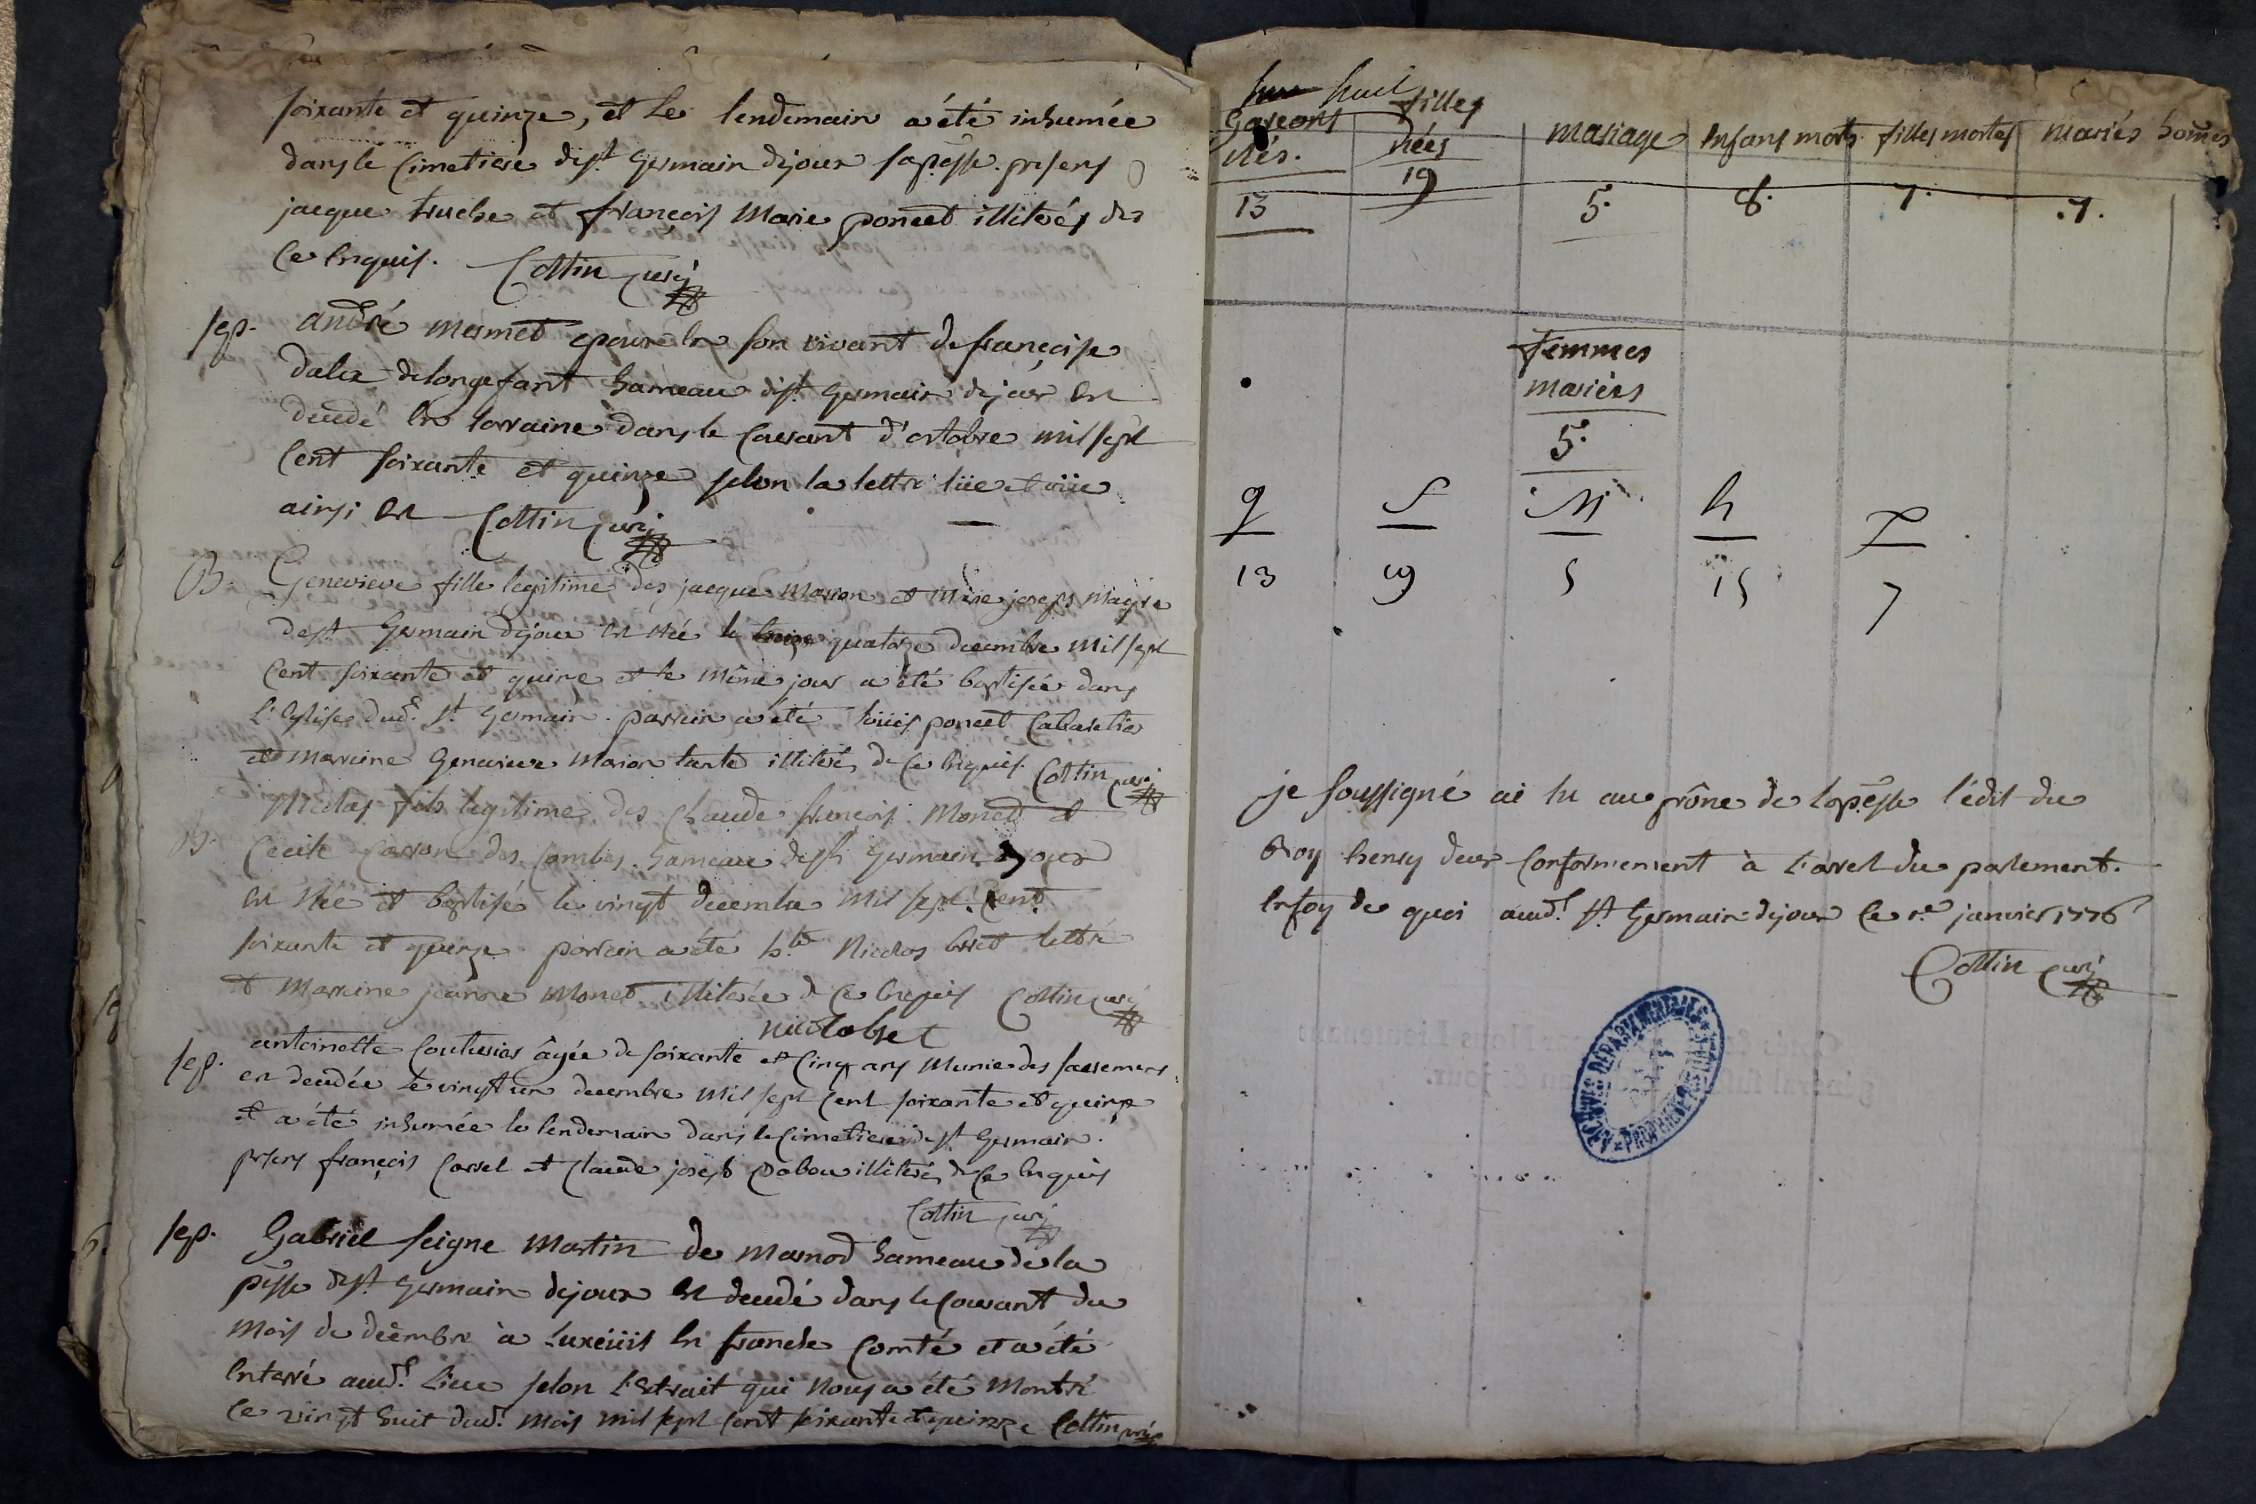 soixante et quinze, et le lendemain a été inhumée
dans le cimetiere de st. Germain dejoux sa p.esse. presens
jacque truche et françois Marie poncet illiterés de
ce enquis. Cottin curé
sep. andré mermet epoux en son vivant de françoise
dalex de longefant hameau de st. germain dejoux est
decedé en lorraine dans le courant d'octobre mil sept
cent soixante et quinze selon la lettre lüe et vüe
ainsi est Cottin curé
B. Genevieve fille legitime des jacque Marion et Marie joseph Magre
de st. Germain dejoux est née le quatorze decembre mil sept
cent soixante et quinze et le même jour a été baptisée dans
l'Eglise dud. st. Germain. parrein a été loüis poncet Cabaretie
et marreine Genevieve Marion tante illiterés de ce enquis. Cottin curé
B. Nicolas fils legitime des Claude françois Monet et
Cecile Carron des Combes hameau de st. Germain dejoux
est née et baptisé le vingt decembre mil sept cent
soixante et quinze parrein a été Nicolas bret lettré
et Marreine jeanne Monet illiterée de ce enquis Cottin curé
nicolabret
sep. antoinette Couturier âgée de soixante et cinq ans Munie des sacremens
est decedée le vingt un decembre mil sept cent soixante et quinze
et a été inhumée le lendemain dans le cimetiere de st. Germain.
presens françois Carrel et Claude joseph illiterés de ce enquis
Cottin curé
sep. Gabriel seigne Martin de Marnod hameau de la
p.esse de st. Germain dejoux est decedé dans le courant du
mois de decembre à Luxeüil en franche Comté et a été
enterré aud. Lieu selon l'Extrait qui nous a été montré
ce vingt huit dud. mois mil sept cent soixante et quinze Cottin curé
huit
Garcons nés. filles nées mariage Enfans morts filles mortes mariés homes
13 19 5. 8. 7. .7.
femmes
mariées
5.
g f M h f
13 19 5 15 7
je soussigné ai lu au prône de la p.esse l'édit du
Roy henry deux conformement à l'arret du parlement.
En foy de quoi aud. st. Germain dejoux ce 1.er janvier 1776
Cottin curé
ARCHIVES DÉPARTEMENTALES
PROPRIÉTÉ PUBLIQUE